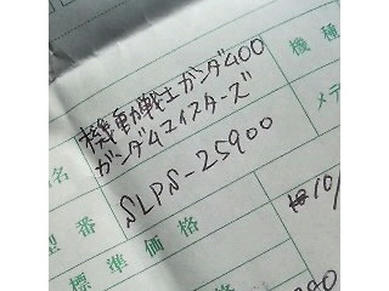 機種
機動戦士ガンダム00
ガンダムマイスターズ
メデ
名
SLPS-25900
型番
10/
標準価格